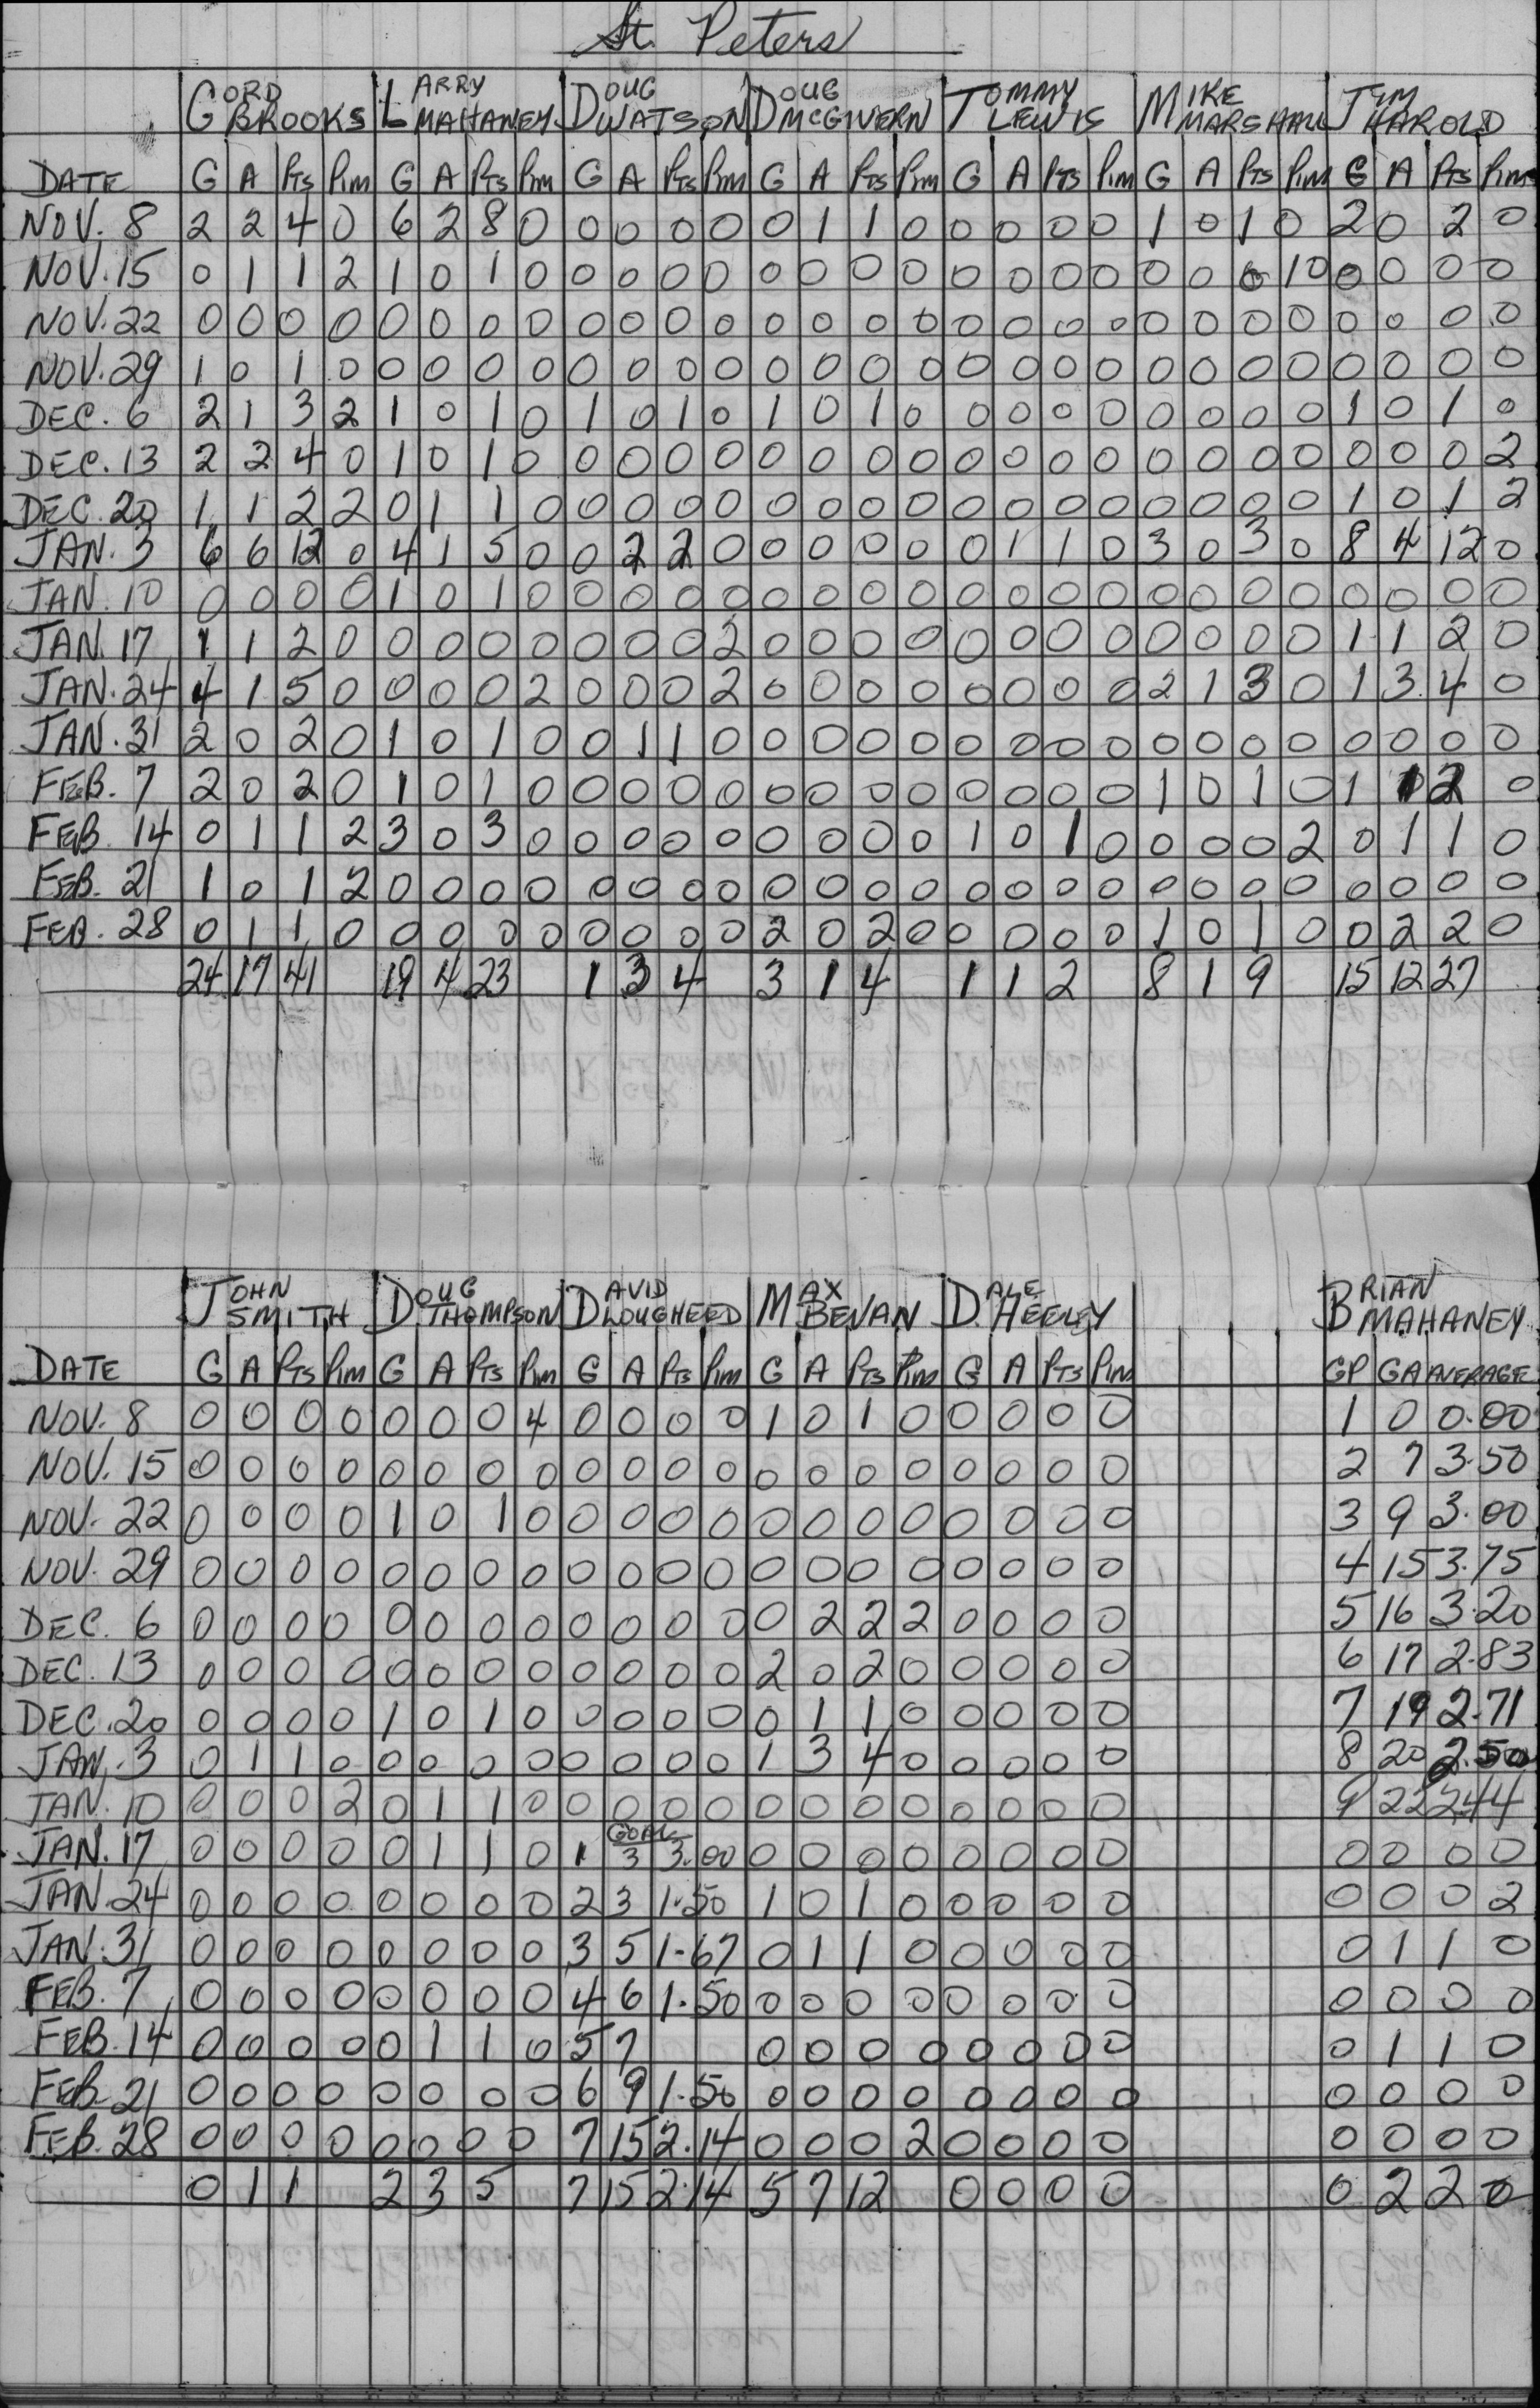 St. Peters
GORD BROOKS LARRY MAHANEY DOUG WATSON DOUG McGIVERN TOMMY LEWIS MIKE MARSHALL JIM HAROLD
DATE G A PTS PIM G A PTS PIM G A PTS PIM G A PTS PIM G A PTS PIM G A PTS PIM G A PTS PIM
NOV. 8 2 2 4 0 6 2 8 0 0 0 0 0 0 1 1 0 0 0 0 0 1 0 1 0 2 0 2 0
NOV. 15 0 1 1 2 1 0 1 0 0 0 0 0 0 0 0 0 0 0 0 0 0 0 0 10 0 0 0 0
NOV. 22 0 0 0 0 0 0 0 0 0 0 0 0 0 0 0 0 0 0 0 0 0 0 0 0 0 0 0 0
NOV. 29 1 0 1 0 0 0 0 0 0 0 0 0 0 0 0 0 0 0 0 0 0 0 0 0 0 0 0 0
DEC. 6 2 1 3 2 1 0 1 0 1 0 1 0 1 0 1 0 0 0 0 0 0 0 0 0 1 0 1 0
DEC. 13 2 2 4 0 1 0 1 0 0 0 0 0 0 0 0 0 0 0 0 0 0 0 0 0 0 0 0 2
DEC. 20 1 1 2 2 0 1 1 0 0 0 0 0 0 0 0 0 0 0 0 0 0 0 0 0 1 0 1 2
JAN. 3 6 6 12 0 4 1 5 0 0 2 2 0 0 0 0 0 0 1 1 0 3 0 3 0 8 4 12 0
JAN. 10 0 0 0 0 1 0 1 0 0 0 0 0 0 0 0 0 0 0 0 0 0 0 0 0 0 0 0 0
JAN. 17 1 1 2 0 0 0 0 0 0 0 0 2 0 0 0 0 0 0 0 0 0 0 0 0 1 1 2 0
JAN. 24 4 1 5 0 0 0 0 2 0 0 0 2 0 0 0 0 0 0 0 0 2 1 3 0 1 3 4 0
JAN. 31 2 0 2 0 1 0 1 0 0 1 1 0 0 0 0 0 0 0 0 0 0 0 0 0 0 0 0 0
FEB. 7 2 0 2 0 1 0 1 0 0 0 0 0 0 0 0 0 0 0 0 0 1 0 1 0 1 1 2 0
FEB. 14 0 1 1 2 3 0 3 0 0 0 0 0 0 0 0 0 1 0 1 0 0 0 0 2 0 1 1 0
FEB. 21 1 0 1 2 0 0 0 0 0 0 0 0 0 0 0 0 0 0 0 0 0 0 0 0 0 0 0 0
FEB. 28 0 1 1 0 0 0 0 0 0 0 0 0 2 0 2 0 0 0 0 0 1 0 1 0 0 2 2 0
24 17 41 19 4 23 1 3 4 3 1 4 1 1 2 8 1 9 15 12 27
JOHN SMITH DOUG THOMPSON DAVID LOUGHEED MAX BEVAN DALE HEELEY BRIAN MAHANEY
DATE G A PTS PIM G A PTS PIM G A PTS PIM G A PTS PIM G A PTS PIM GP GA AVERAGE
NOV. 8 0 0 0 0 0 0 0 4 0 0 0 0 1 0 1 0 0 0 0 0 1 0 0.00
NOV. 15 0 0 0 0 0 0 0 0 0 0 0 0 0 0 0 0 0 0 0 0 2 7 3.50
NOV. 22 0 0 0 0 1 0 1 0 0 0 0 0 0 0 0 0 0 0 0 0 3 9 3.00
NOV. 29 0 0 0 0 0 0 0 0 0 0 0 0 0 0 0 0 0 0 0 0 4 15 3.75
DEC. 6 0 0 0 0 0 0 0 0 0 0 0 0 0 2 2 2 0 0 0 0 5 16 3.20
DEC. 13 0 0 0 0 0 0 0 0 0 0 0 0 2 0 2 0 0 0 0 0 6 17 2.83
DEC. 20 0 0 0 0 1 0 1 0 0 0 0 0 0 1 1 0 0 0 0 0 7 19 2.71
JAN. 3 0 1 1 0 0 0 0 0 0 0 0 0 1 3 4 0 0 0 0 0 8 20 2.50
JAN. 10 0 0 0 2 0 1 1 0 0 0 0 0 0 0 0 0 0 0 0 0 9 22 2.44
GOAL
JAN. 17 0 0 0 0 0 1 1 0 1 3 3.00 0 0 0 0 0 0 0 0 0 0 0 0
JAN. 24 0 0 0 0 0 0 0 0 2 3 1.50 1 0 1 0 0 0 0 0 0 0 0 2
JAN. 31 0 0 0 0 0 0 0 0 3 5 1.67 0 1 1 0 0 0 0 0 0 1 1 0
FEB. 7 0 0 0 0 0 0 0 0 4 6 1.50 0 0 0 0 0 0 0 0 0 0 0 0
FEB. 14 0 0 0 0 0 1 1 0 5 7 0 0 0 0 0 0 0 0 0 1 1 0
FEB. 21 0 0 0 0 0 0 0 0 6 9 1.50 0 0 0 0 0 0 0 0 0 0 0 0
FEB. 28 0 0 0 0 0 0 0 0 7 15 2.14 0 0 0 2 0 0 0 0 0 0 0 0
0 1 1 2 3 5 7 15 2.14 5 7 12 0 0 0 0 0 2 2 0